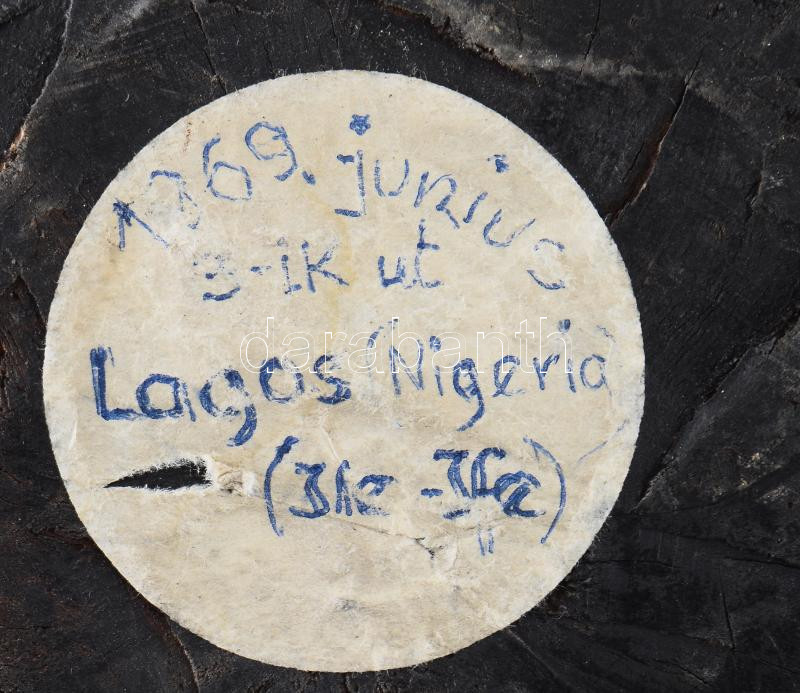 1969. junius
3-ik ut
Lagos (Nigeria)
(Ile-Ifa)
darabanth